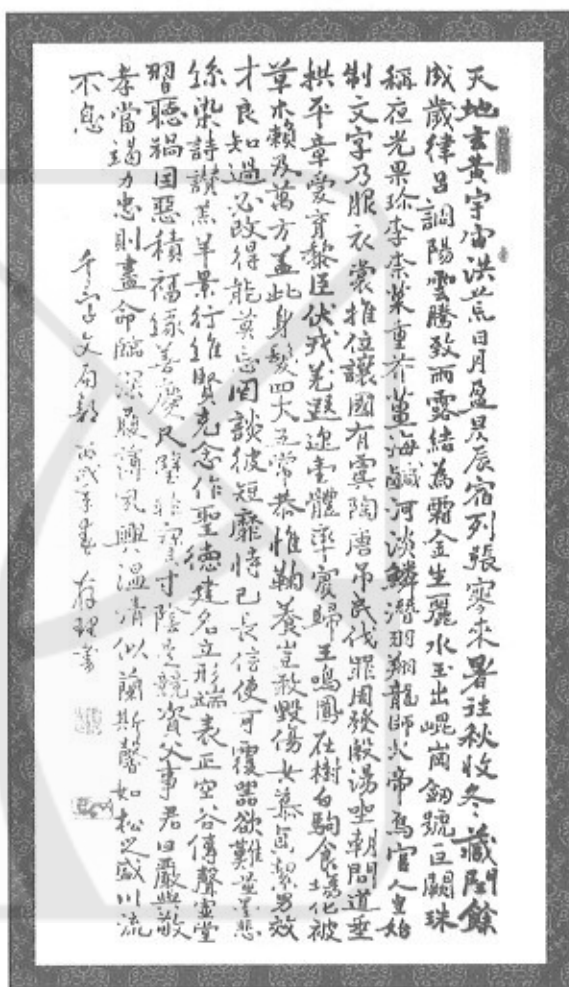 天地玄黃宇宙洪荒日月盈昃辰宿列張寒來暑往秋收冬藏閏餘
成歲律呂調陽雲騰致雨露結為霜金生麗水玉出崐崗劒號巨闕珠
稱夜光果珍李柰菜重芥薑海鹹河淡鱗潛羽翔龍師火帝鳥官人皇始
制文字乃服衣裳推位讓國有虞陶唐吊民伐罪周發殷湯坐朝問道垂
拱平章愛育黎臣伏戎羌遐邇壹體率賓歸王鳴鳳在樹白駒食場化被
草木賴及萬方蓋此身髮四大五常恭惟鞠養豈敢毀傷女慕貞潔男效
才良知過必改得能莫忘罔談彼短靡恃己長信使可覆器欲難量墨悲
絲染詩讚羔羊景行維賢克念作聖德建名立形端表正空谷傳聲虛堂
習聽禍因惡積福緣善慶尺璧非寶寸陰是競資父事君曰嚴與敬
孝當竭力忠則盡命臨深履薄夙興溫凊似蘭斯馨如松之盛川流
不息
千字文局部 丙戌年春 存理書